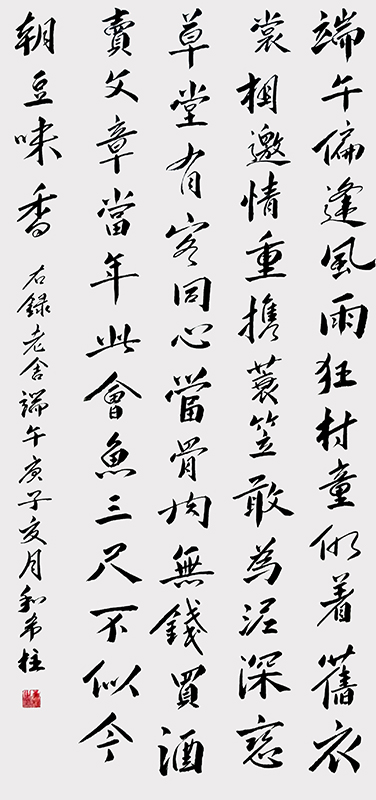 端午偏逢風雨狂村童仍着舊衣
裳相邀情重攜蓑笠敢為泥深戀
草堂有客同心當骨肉無錢買酒
賣文章當年此會魚三尺不似今
朝豆味香
右錄老舍端午庚子夏月和希柱